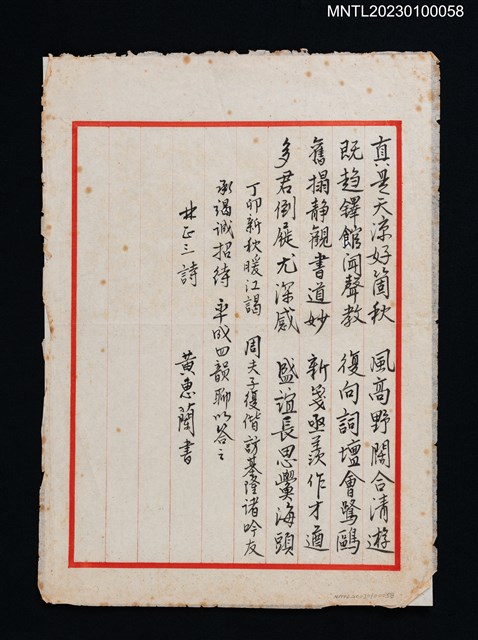 MNTL20230100058
真是天涼好箇秋 風高野闊合清遊
既趋鐸館聞聲教 復向詞壇會鷺鷗
舊搨靜觀書道妙 新箋亟羨作才遒
多君倒屣尤深感 盛誼長思黌海頭
丁卯新秋暖江謁 周夫子復偕訪基隆諸吟友
承竭誠招待 率成四韻聊以答之
林正三詩
黃惠蘭書